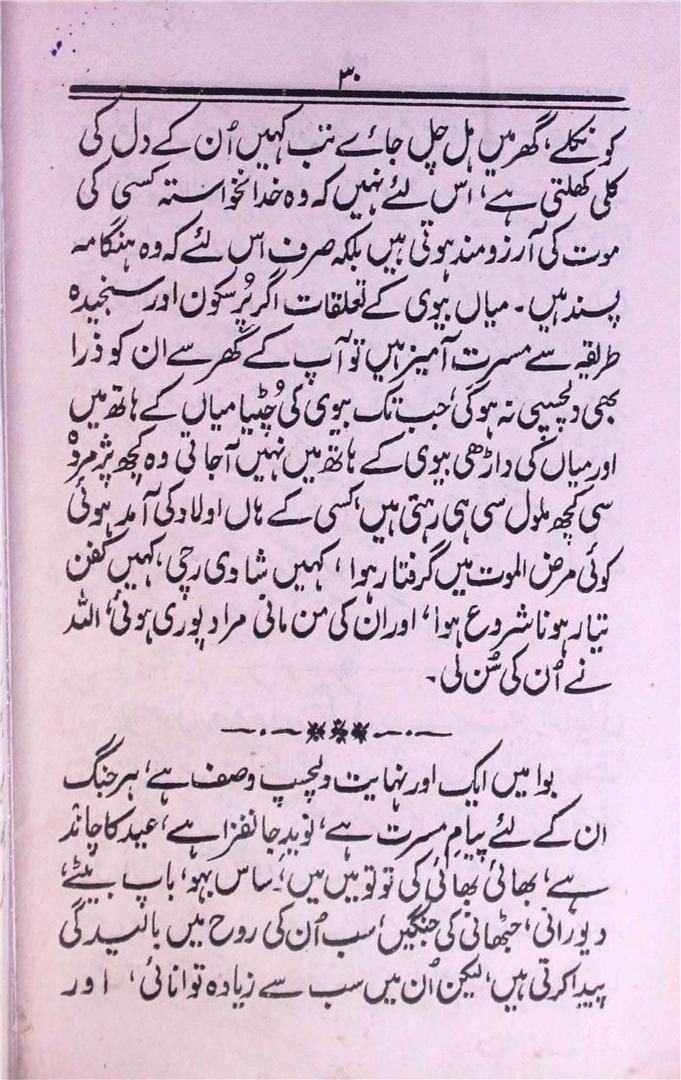 ۳۰
کو نکلے، گھر میں ہل چل جائے تب کہیں اُن کے دل کی
کلی کھلتی ہے، اس لئے نہیں کہ وہ خدانخواستہ کسی کی
موت کی آرزو مند ہوتی ہیں بلکہ صرف اس لئے کہ وہ ہنگامہ
پسند ہیں۔ میاں بیوی کے تعلقات اگر پُرسکون اور سنجیدہ
طریقہ سے مسرت آمیز ہیں تو آپ کے گھر سے ان کو ذرا
بھی دلچسپی نہ ہوگی، جب تک بیوی کی چُٹیا میاں کے ہاتھ میں
اور میاں کی داڑھی بیوی کے ہاتھ میں نہیں آجاتی وہ کچھ پژمردہ
سی کچھ ملول سی ہی رہتی ہیں، کسی کے ہاں اولاد کی آمد ہوئی
کوئی مرض الموت میں گرفتار ہوا، کہیں شادی رچی، کہیں کفن
تیار ہونا شروع ہوا، اور ان کی من مانی مراد پوری ہوئی، اللہ
نے اُن کی سُن لی۔
بوا میں ایک اور نہایت دلچسپ وصف ہے، ہر جنگ
ان کے لئے پیامِ مسرت ہے، نویدِ جانفزا ہے، عید کا چاند
ہے، بھائی بھائی کی تو تو میں میں، ساس بہو، باپ بیٹے،
دیورانی، جٹھانی کی جنگیں، سب اُن کی روح میں بالیدگی
پیدا کرتی ہیں، لیکن اُن میں سب سے زیادہ توانائی، اور